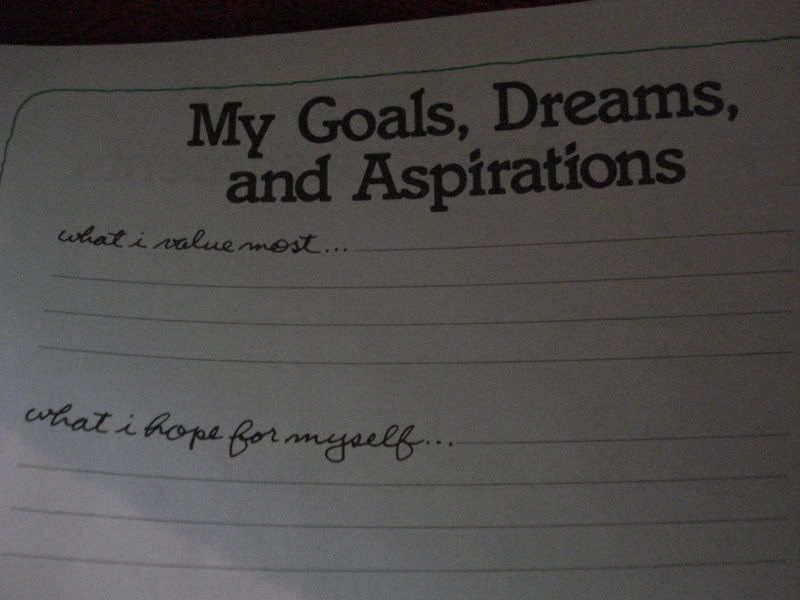 My Goals, Dreams,
and Aspirations
what i value most...
what i hope for myself...